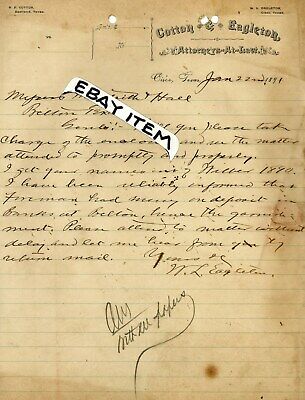 Cotton & Eagleton,
Attorneys-At-Law.
Cisco, Texas, Jan 22nd 1891
Messrs & Hall
Belton Tex
Gents: you please take
charge of the enclosed and see the matter
attended to promptly and properly.
I get your names out of 1890.
I have been reliably informed that
Foreman had money on deposit in
Banks, at Belton, hence the garnish-
ment. Please attend to matter without
delay and let me hear from you by
return mail. Yours &c
W. L. Eagleton
with all papers
EBAY ITEM